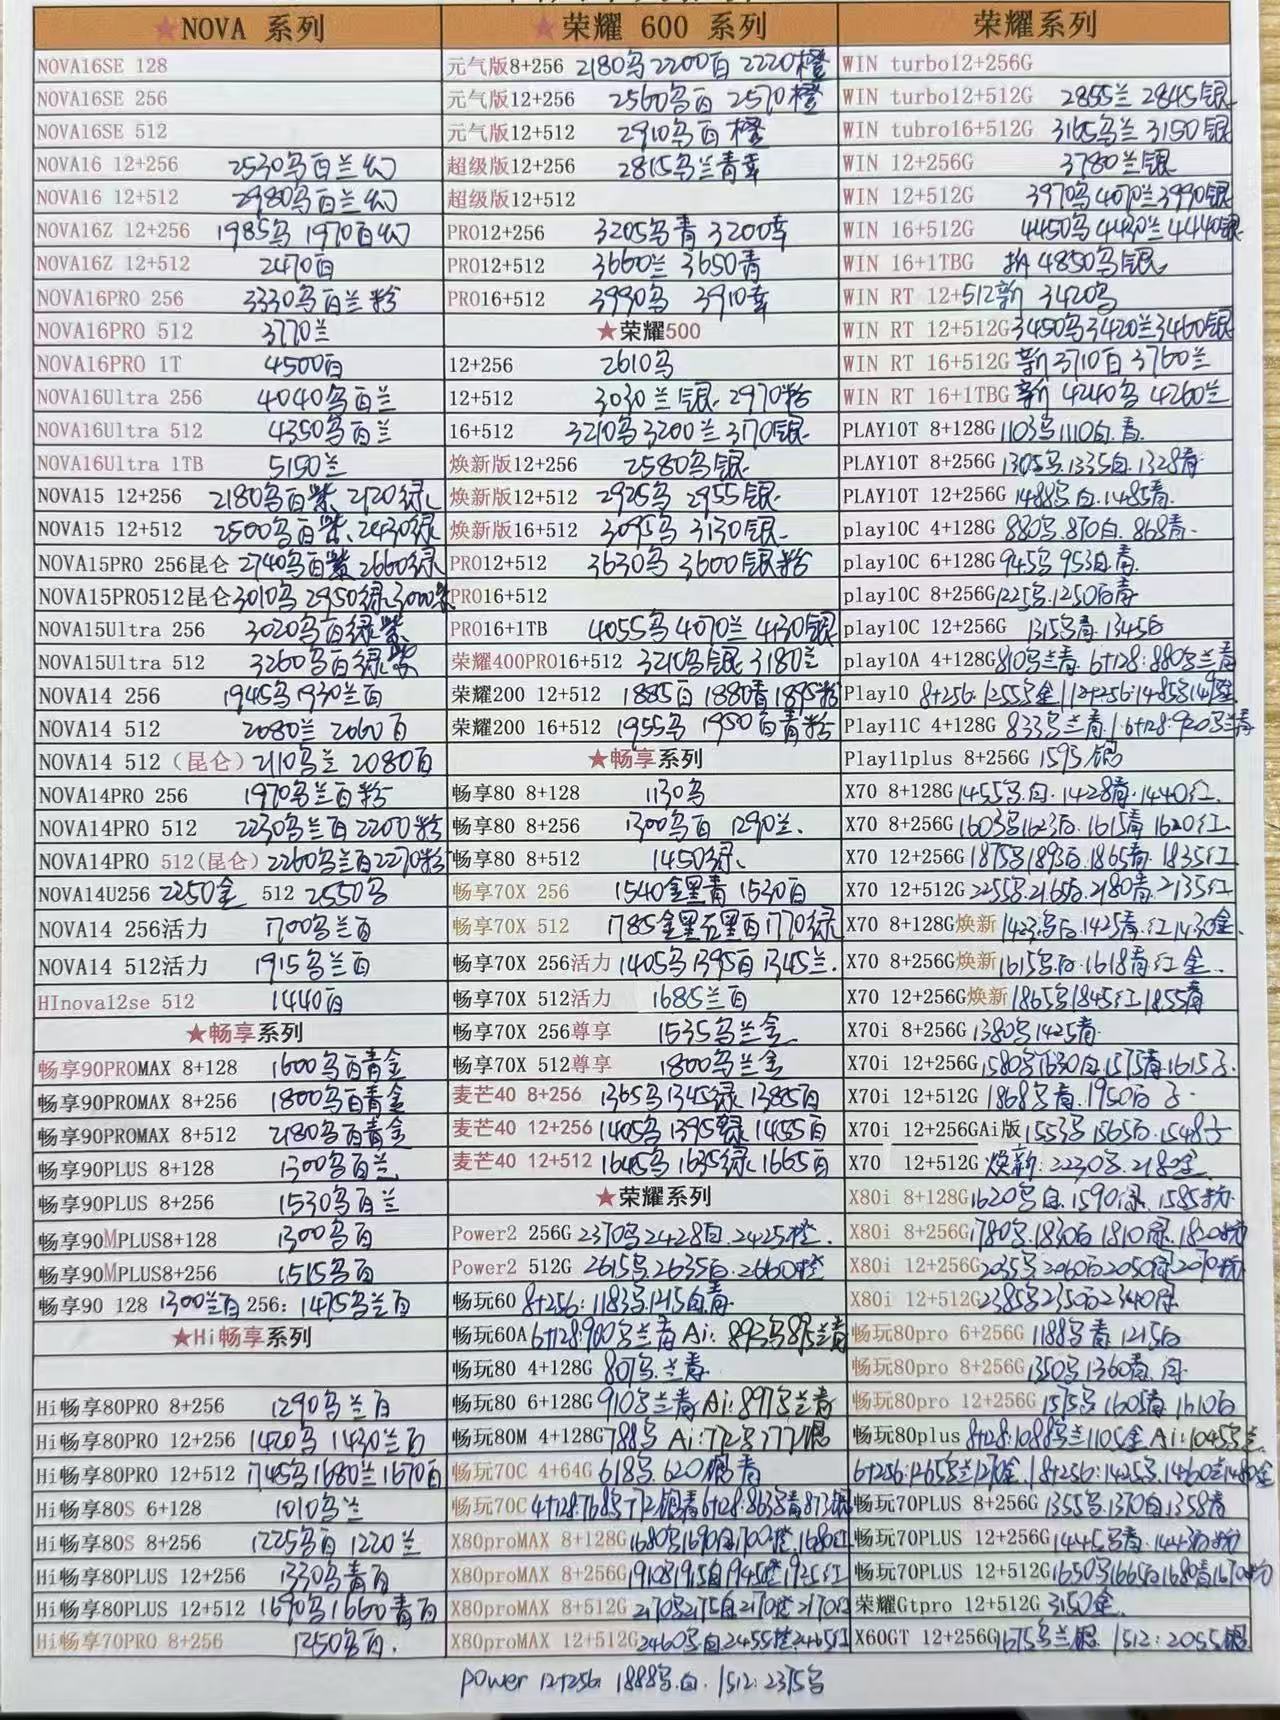 ★NOVA 系列
NOVA16SE 128
NOVA16SE 256
NOVA16SE 512
NOVA16 12+256 2530乌白兰幻
NOVA16 12+512 2980乌白兰幻
NOVA16Z 12+256 1985乌 1970白幻
NOVA16Z 12+512 2470白
NOVA16PRO 256 3330乌白兰粉
NOVA16PRO 512 3770兰
NOVA16PRO 1T 4500白
NOVA16Ultra 256 4040乌白兰
NOVA16Ultra 512 4350乌白兰
NOVA16Ultra 1TB 5150兰
NOVA15 12+256 2180乌白紫 2120绿
NOVA15 12+512 2500乌白紫、2430绿
NOVA15PRO 256昆仑 2740乌白紫 2660绿
NOVA15PRO512昆仑 3010乌 2950绿 3000
NOVA15Ultra 256 3020乌白绿紫
NOVA15Ultra 512 3260乌白绿紫
NOVA14 256 1945乌 1930兰白
NOVA14 512 2080兰 2060白
NOVA14 512（昆仑）2110乌兰 2080白
NOVA14PRO 256 1970乌兰白粉
NOVA14PRO 512 2230乌兰白 2200粉
NOVA14PRO 512(昆仑) 2260乌兰白 2270粉
NOVA14U256 2250金 512 2550乌
NOVA14 256活力 1700乌兰白
NOVA14 512活力 1915乌兰白
HInova12se 512 1440白
★畅享系列
畅享90PROMAX 8+128 1600乌白青金
畅享90PROMAX 8+256 1800乌白青金
畅享90PROMAX 8+512 2180乌白青金
畅享90PLUS 8+128 1300乌白兰
畅享90PLUS 8+256 1530乌白兰
畅享90MPLUS8+128 1300乌白
畅享90MPLUS8+256 1515乌白
畅享90 128 1300兰白 256: 1475乌兰白
★Hi畅享系列
Hi畅享80PRO 8+256 1290乌兰白
Hi畅享80PRO 12+256 1420乌 1430兰白
Hi畅享80PRO 12+512 1745乌 1680兰 1670白
Hi畅享80S 6+128 1010乌兰
Hi畅享80S 8+256 1225乌白 1220兰
Hi畅享80PLUS 12+256 1330乌青白
Hi畅享80PLUS 12+512 1690乌 1660青白
Hi畅享70PRO 8+256 1250乌白.
★荣耀 600 系列
元气版8+256 2180乌 2200白 2220橙
元气版12+256 2560乌白 2570橙
元气版12+512 2910乌白橙
超级版12+256 2815乌兰青幸
超级版12+512
PRO12+256 3205乌青 3200幸
PRO12+512 3660兰 3650青
PRO16+512 3990乌 3910幸
★荣耀500
12+256 2610乌
12+512 3030兰银 2970粉
16+512 3210乌 3200兰 3170银
焕新版12+256 2580乌银
焕新版12+512 2925乌 2955银
焕新版16+512 3095乌 3130银
PRO12+512 3630乌 3600银粉
PRO16+512
PRO16+1TB 4055乌 4070兰 4130银
荣耀400PRO16+512 3210乌银 3180兰
荣耀200 12+512 1885白 1880青 1895粉
荣耀200 16+512 1955乌 1950白青粉
★畅享系列
畅享80 8+128 1130乌
畅享80 8+256 1300乌白 1290兰.
畅享80 8+512 1450绿
畅享70X 256 1540金黑青 1530白
畅享70X 512 1785金黑石黑白 1770绿
畅享70X 256活力 1405乌 1395白 1345兰.
畅享70X 512活力 1685兰白
畅享70X 256尊享 1535乌兰金
畅享70X 512尊享 1800乌兰金
麦芒40 8+256 1365乌 1345绿 1385白
麦芒40 12+256 1405乌 1395绿 1455白
麦芒40 12+512 1645乌 1635绿 1665白
★荣耀系列
Power2 256G 2370乌 2428白.2425橙.
Power2 512G 2615乌.2635白.2660橙
畅玩60 8+256:1183乌.1215白.青
畅玩60A 6+128:900乌兰青 Ai: 893乌895兰青
畅玩80 4+128G 807乌.兰青
畅玩80 6+128G 910乌兰青 Ai:897乌兰青
畅玩80M 4+128G 788乌 Ai:772乌777银
畅玩70C 4+64G 618乌.620银青
畅玩70C 4+128:768乌772银青6+128:863乌青873银
X80proMAX 8+128G 1680乌1690白1700橙.1680红
X80proMAX 8+256G 1910乌1915白1945橙1925红
X80proMAX 8+512G 2170乌2175白2170橙2170红
X80proMAX 12+512G 2460乌白2455橙2465红
荣耀系列
WIN turbo12+256G
WIN turbo12+512G 2855兰 2845银
WIN tubro16+512G 3165乌兰 3150银
WIN 12+256G 3780兰银
WIN 12+512G 3970乌4070兰3990银
WIN 16+512G 4450乌4430兰4440银
WIN 16+1TBG 4850乌银
WIN RT 12+512新 3420乌
WIN RT 12+512G 3450乌3420兰3460银
WIN RT 16+512G 新3710白 3760兰
WIN RT 16+1TBG 新 4240乌 4260兰
PLAY10T 8+128G 1103乌1110白.青.
PLAY10T 8+256G 1305乌.1335白.1328青
PLAY10T 12+256G 1488乌.白.1485青.
play10C 4+128G 880乌.870白.868青.
play10C 6+128G 945乌953白.青.
play10C 8+256G 1225乌.1250白青
play10C 12+256G 1315乌青.1345白
play10A 4+128G 810乌兰青.6+128:880乌兰青
Play10 8+256:1255乌金 12+256:1485乌
Play11C 4+128G 833乌兰青 6+128:920乌兰青
Play11plus 8+256G 1595银
X70 8+128G 1455乌.白.1428青.1440红.
X70 8+256G 1603乌1623白.1615青 1620红
X70 12+256G 1875乌1893白.1865青.1835红
X70 12+512G 2255乌.2165白.2180青.2135红
X70 8+128G焕新 1423乌白.1425青.红1430金.
X70 8+256G焕新 1615乌.白.1618青红金.
X70 12+256G焕新 1865乌1845红1855青
X70i 8+256G 1380乌1425青.
X70i 12+256G 1580乌1630白.1575青.1615子.
X70i 12+512G 1868乌青.1950白子.
X70i 12+256GAi版 1553乌1565白.1548子
X70 12+512G 焕新:2230乌.2180金
X80i 8+128G 1620乌白.1590绿.1585粉
X80i 8+256G 1780乌.1830白1810绿.1820粉
X80i 12+256G 2035乌2060白2050绿2070粉
X80i 12+512G 2385乌2350白2340绿
畅玩80pro 6+256G 1188乌青1215白
畅玩80pro 8+256G 1350乌1360青.白.
畅玩80pro 12+256G 1575乌1605青.1610白
畅玩80plus 8+128:1088乌兰1105金 Ai:1045乌兰
6+256:1265乌兰1270金.8+256:1425乌.1460兰1480金
畅玩70PLUS 8+256G 1355乌.1370白1358青
畅玩70PLUS 12+256G 1445乌青.1443白粉
畅玩70PLUS 12+512G 1650乌1665白1680青1670粉
荣耀Gtpro 12+512G 3150金.
X60GT 12+256G 1675乌兰银 1512:2055银
power 12+256: 1888乌.白. 1512:2375乌